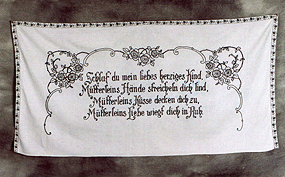 Schlaf du mein liebes herziges Kind,
Mütterleins Hände streicheln dich lind,
Mütterleins Küsse decken dich zu,
Mütterleins Liebe wiegt dich in Ruh.